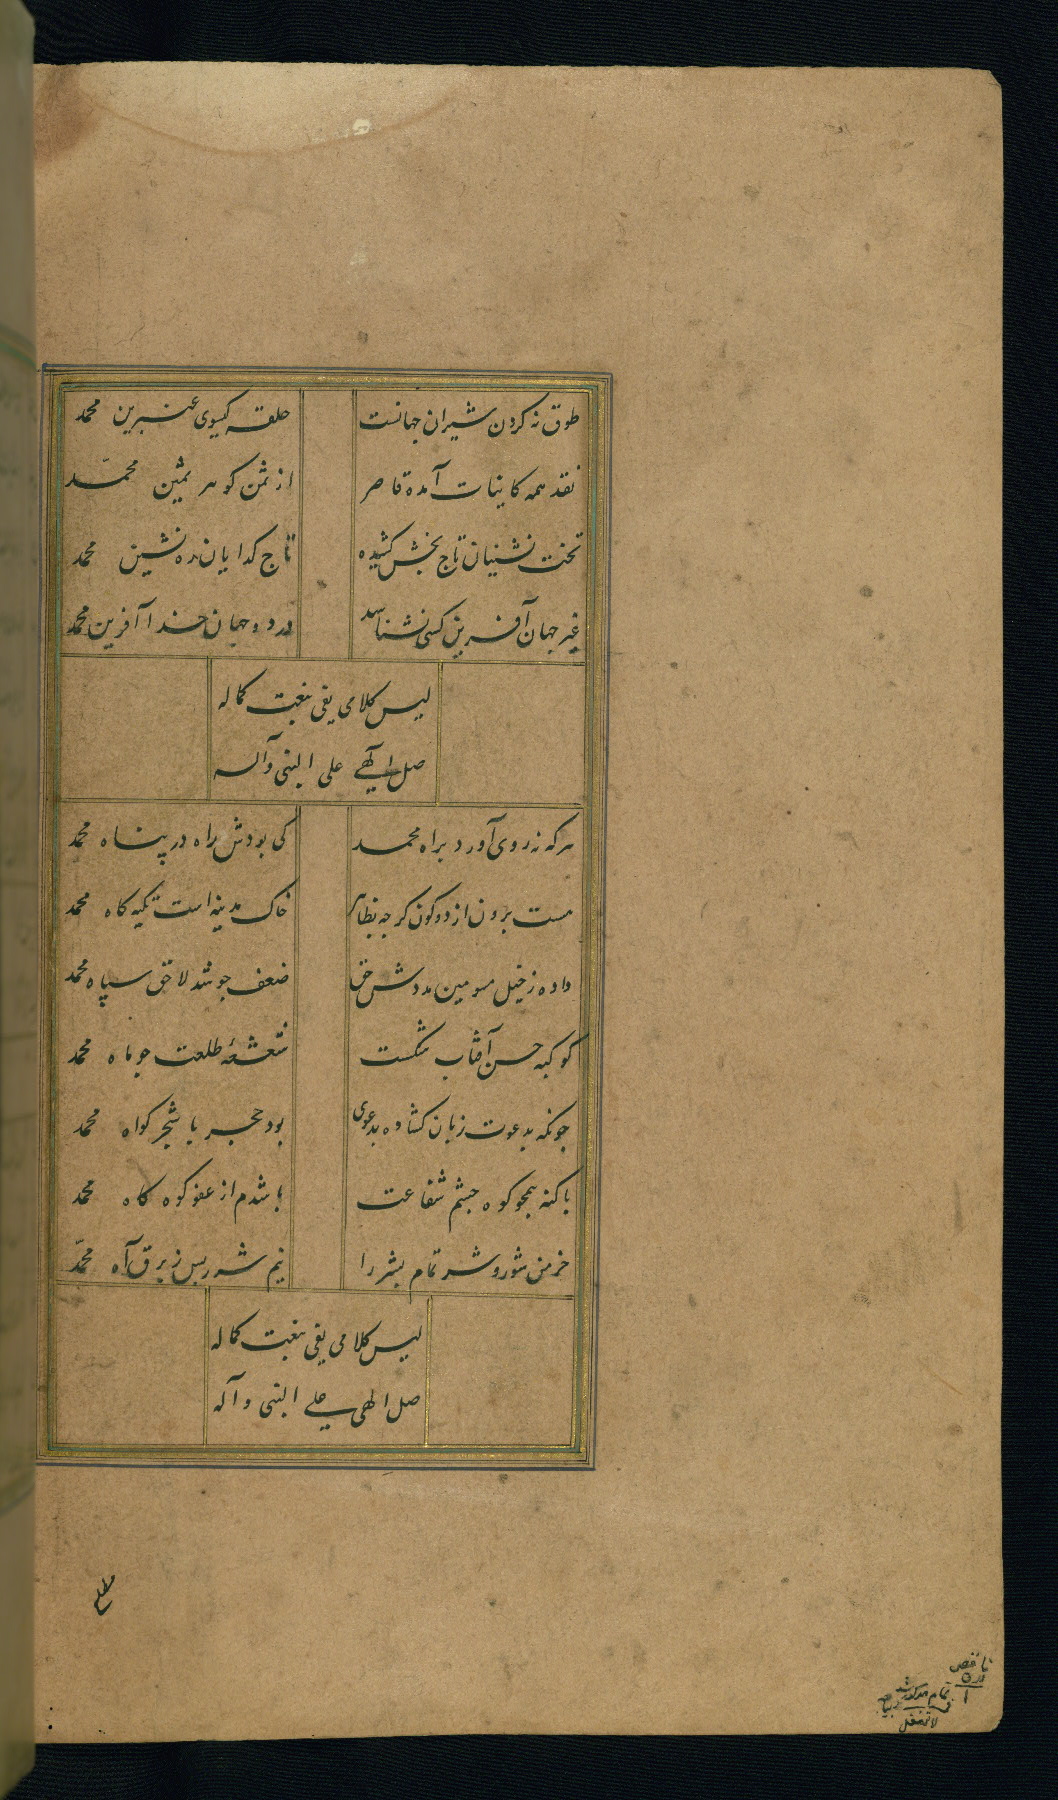 طوق نه گردن شیران جهانست حلقه گیسوی عنبرین محمد
نقد همه کاینات آمده قاصر از ثمن گوهر ثمین محمد
تخت نشینان تاج بخش کشیده تاج گدایان ره نشین محمد
غیر جهان آفرین کسی نشناسد در دو جهان جز خدا آفرین محمد
لیس کلامی یفی بنعت کماله
صل الهی علی النبی وآله
هر که نه روی آورد براه محمد کی بودش راه در پناه محمد
هست برون از دو کون گرچه بظاهر خاک مدینه است تکیه گاه محمد
داده ز خیل مسومین مددش حق ضعف چو شد لاحق سپاه محمد
کوکبه حسن آفتاب شکست شعشعهٔ طلعت چو ماه محمد
چونکه بدعوت زبان گشاده بدعوی بود حجر با شجر گواه محمد
با گنه همچو کوه چشم شفاعت باشدم از عفو کوه کاه محمد
خرمن شور و شر تمام بشر را نیم شرر بس ز برق آه محمد
لیس کلامی یفی بنعت کماله
صل الهی علی النبی وآله